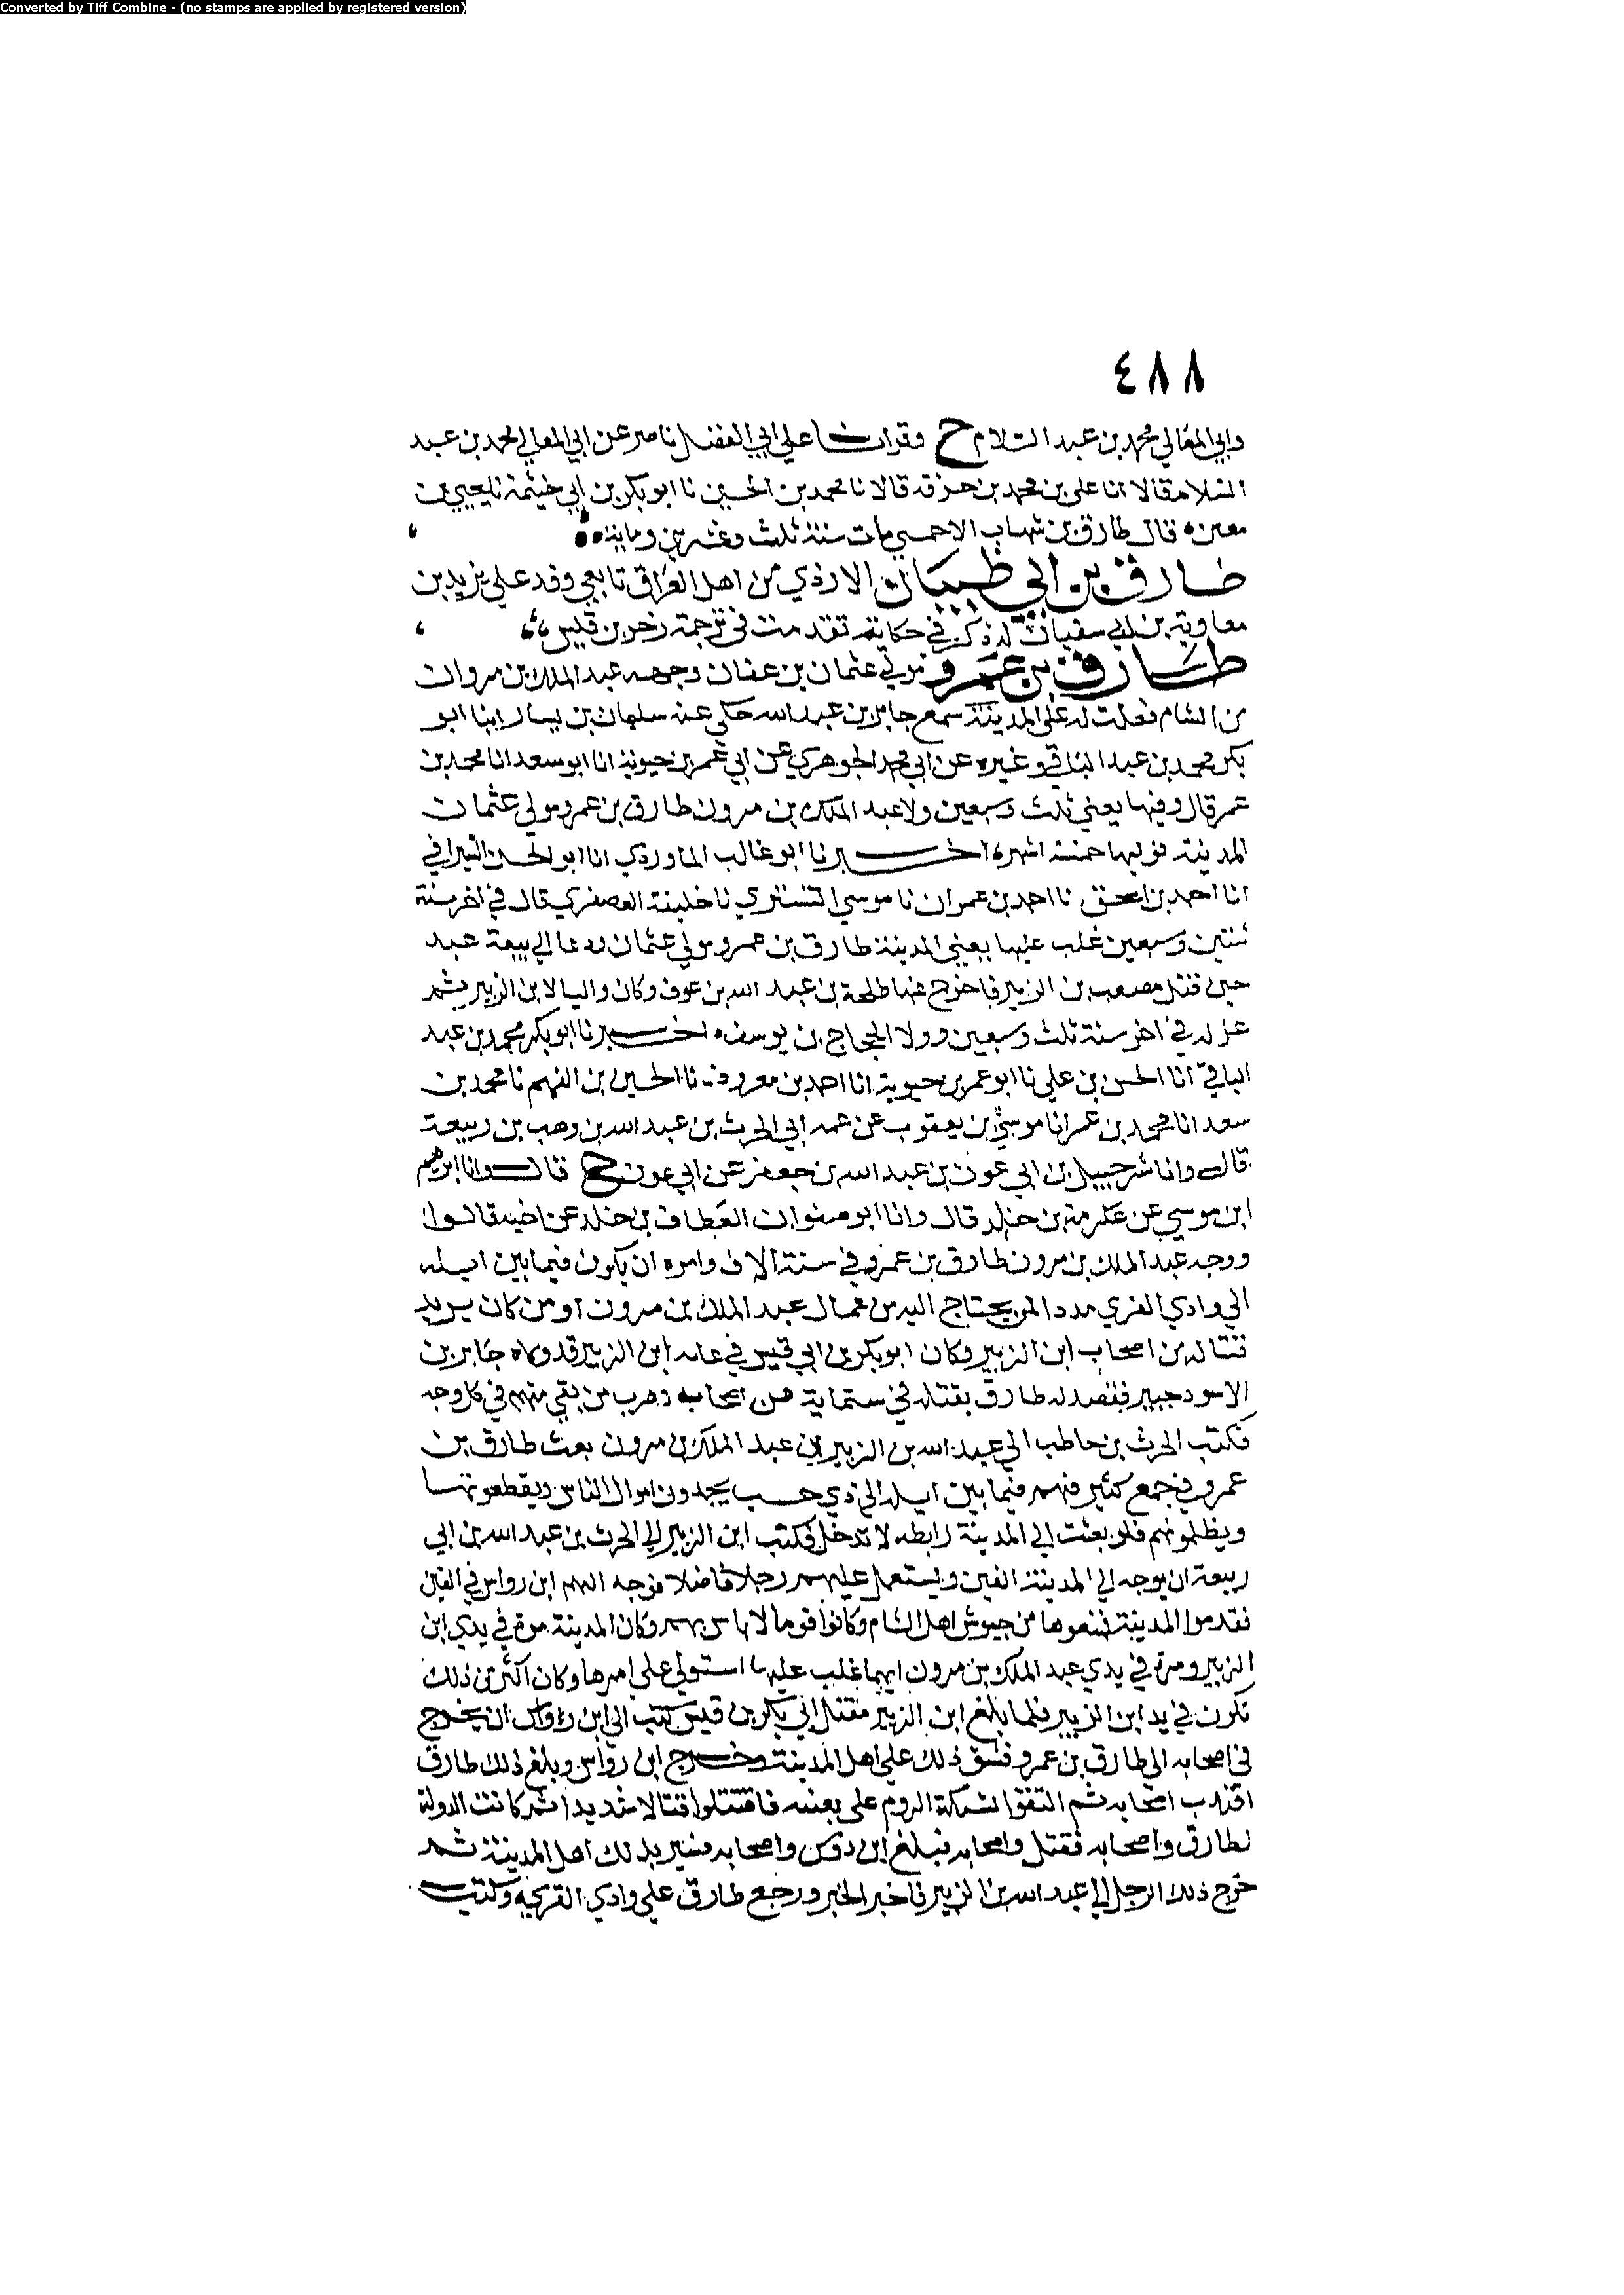 Converted by Tiff Combine - (no stamps are applied by registered version)
٤٨٨
وابي المعالي محمد بن عبد السلام ح وقرات على ابي الفضل ناصر عن ابي المعالي محمد بن عبد
السلام قالا انا علي بن محمد بن خزفه قالا نا محمد بن الحسين نا ابو بكر بن ابي خيثمة نا يحيي بن
معين قال طارق بن شهاب الاحمسي مات سنة ثلث وعشرين وماية
طارق بن ابي ظبيان الازدي من اهل العراق تابعي وفد علي يزيد بن
معاوية بن ابي سفيان له ذكر في حكاية تقدمت في ترجمة زحر بن قيس
طارق بن عمرو مولي عثمان بن عفان وجهه عبد الملك بن مروان
من الشام فغلب له على المدينة سمع جابر بن عبد الله حكي عنه سليمان بن يسار ابنا ابو
بكر محمد بن عبد الباقي وغيره عن ابي محمد الجوهري عن ابي عمر بن حيوية انا ابو سعد انا محمد بن
عمر قال وفيها يعني ثلث وسبعين ولا عبد الملك بن مرون طارق بن عمرو مولي عثمان
المدينة فوليها خمسة اشهر اخبرنا ابو غالب الماوردي انا ابو الحسن السيرافي
انا احمد بن اسحق نا احمد بن عمران نا موسي التستري نا خليفة العصفري قال في اخر سنة
ثنتين وسبعين غلب عليها يعني المدينة طارق بن عمرو مولي عثمان ودعا الي بيعة عبد
حين قتل مصعب بن الزبير فاخرج عنها طلحة بن عبد الله بن عوف وكان واليا لابن الزبير ثم
عزله في اخر سنة ثلث وسبعين وولا الحجاج بن يوسف اخبرنا ابو بكر محمد بن عبد
الباقي انا الحسن بن علي نا ابو عمر بن حيوية انا احمد بن معروف نا الحسين بن الفهم نا محمد بن
سعد انا محمد بن عمر انا موسي بن يعقوب عن عمه ابي الحرث بن عبد الله بن وهب بن ربيعة
قال وانا شرحبيل بن ابي عون بن عبد الله بن جعفر عن ابي عون ح قال وانا ابرهيم
ابن موسي عن عكرمة بن خالد قال وانا ابو صفوان العطاف بن خلد عن اخيه قالوا
ووجه عبد الملك بن مرون طارق بن عمرو في ستة الاف وامره ان يكون فيما بين ايله
الي وادي القري مددا لمن يحتاج اليه من عمال عبد الملك بن مرون او من كان يريد
قتاله من اصحاب ابن الزبير وكان ابو بكر بن ابي قيس في ابن الزبير قد ولاه جابر بن
الاسود جبير فقصد له طارق بقتله في ستماية من اصحابه وهرب من بقي منهم في كل وجه
فكتب الحرث بن حاطب الي عبد الله بن الزبير ان عبد الملك بن مرون بعث طارق بن
عمرو في جمع كثير فهم فيما بين ايله الي ذي خشب يجدون اموال الناس ويقطعونها
ويظلمونهم فلو بعثت الي المدينة رابطه لا تدخل فكتب ابن الزبير الي الحرث بن عبد الله بن ابي
ربيعة ان يوجه الي المدينة الفين ويستعمل عليهم رجلا فاضلا فوجه اليهم ابن رواس في الفين
فقدموا المدينة فمنعوها من جيوش اهل الشام وكانوا قوما لا باس بهم وكان المدينة مرة في يدي ابن
الزبير ومرة في يدي عبد الملك بن مرون ايهما غلب عليها استولي علي امرها وكان اكثر من ذلك
تكون في يد ابن الزبير فلما بلغ ابن الزبير مقتل ابي بكر بن قيس كتب الي ابن رواس ان يخرج
في اصحابه الي طارق بن عمرو فشق ذلك علي اهل المدينة وخرج ابن رواس وبلغ ذلك طارق
اصحابه ثم التقوا بشبكة الروم على فاقتتلوا قتالا شديدا ثم كانت الدولة
لطارق واصحابه فقتل واصحابه فبلغ ابن دوس واصحابه فسير بذلك اهل المدينة ثم
خرج ذلك الرجل الي عبد الله بن الزبير فاخبر الخبر ورجع طارق علي وادي القري وكتب